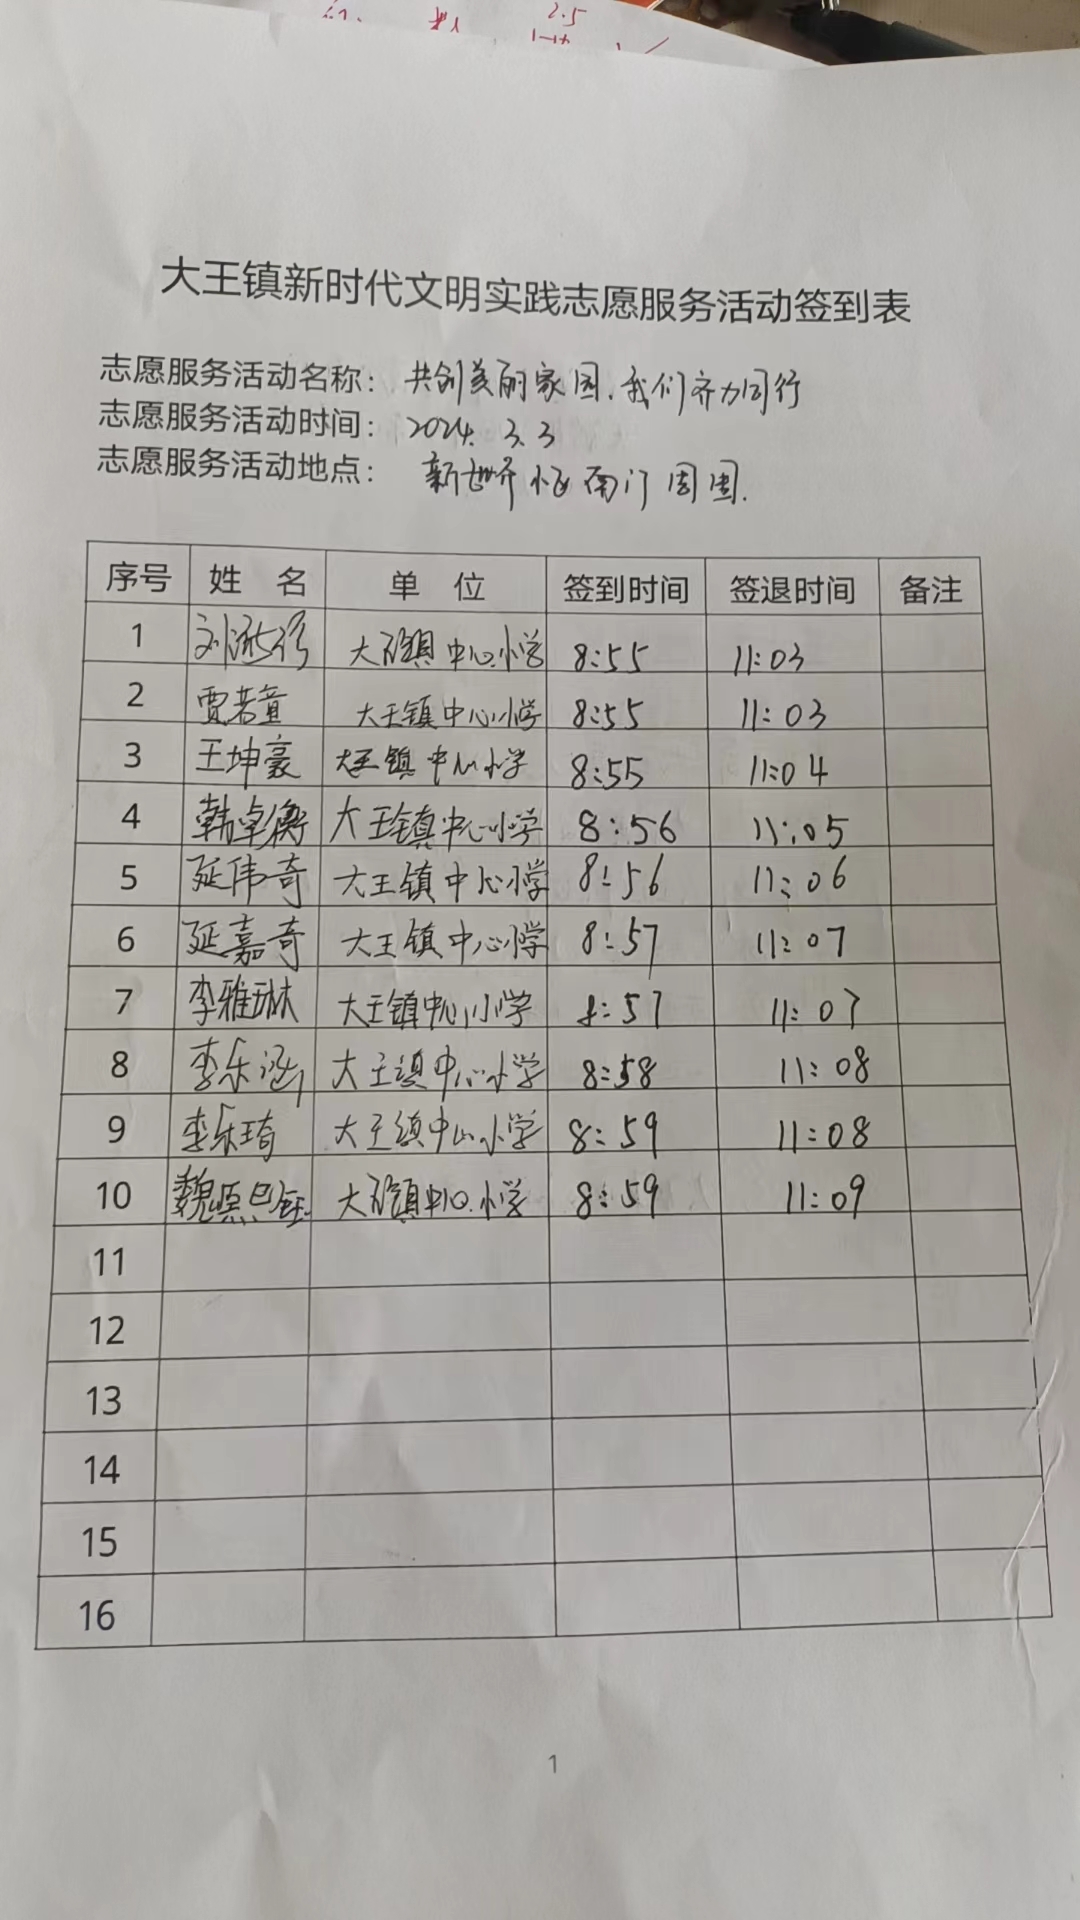 2.5
大王镇新时代文明实践志愿服务活动签到表
志愿服务活动名称: 共创美丽家园.我们齐力同行
志愿服务活动时间: 2024. 3. 3
志愿服务活动地点: 新世界小区南门周围.
序号 姓 名 单 位 签到时间 签退时间 备注
1 刘 大王镇中心小学 8:55 11:03
2 贾若童 大王镇中心小学 8:55 11:03
3 王坤豪 大王镇中心小学 8:55 11:04
4 韩卓衡 大王镇中心小学 8:56 11:05
5 延伟奇 大王镇中心小学 8:56 11:06
6 延嘉奇 大王镇中心小学 8:57 11:07
7 李雅琳 大王镇中心小学 8:57 11:07
8 李乐涵 大王镇中心小学 8:58 11:08
9 李乐琦 大王镇中心小学 8:59 11:08
10 魏 大王镇中心小学 8:59 11:09
11
12
13
14
15
16
1